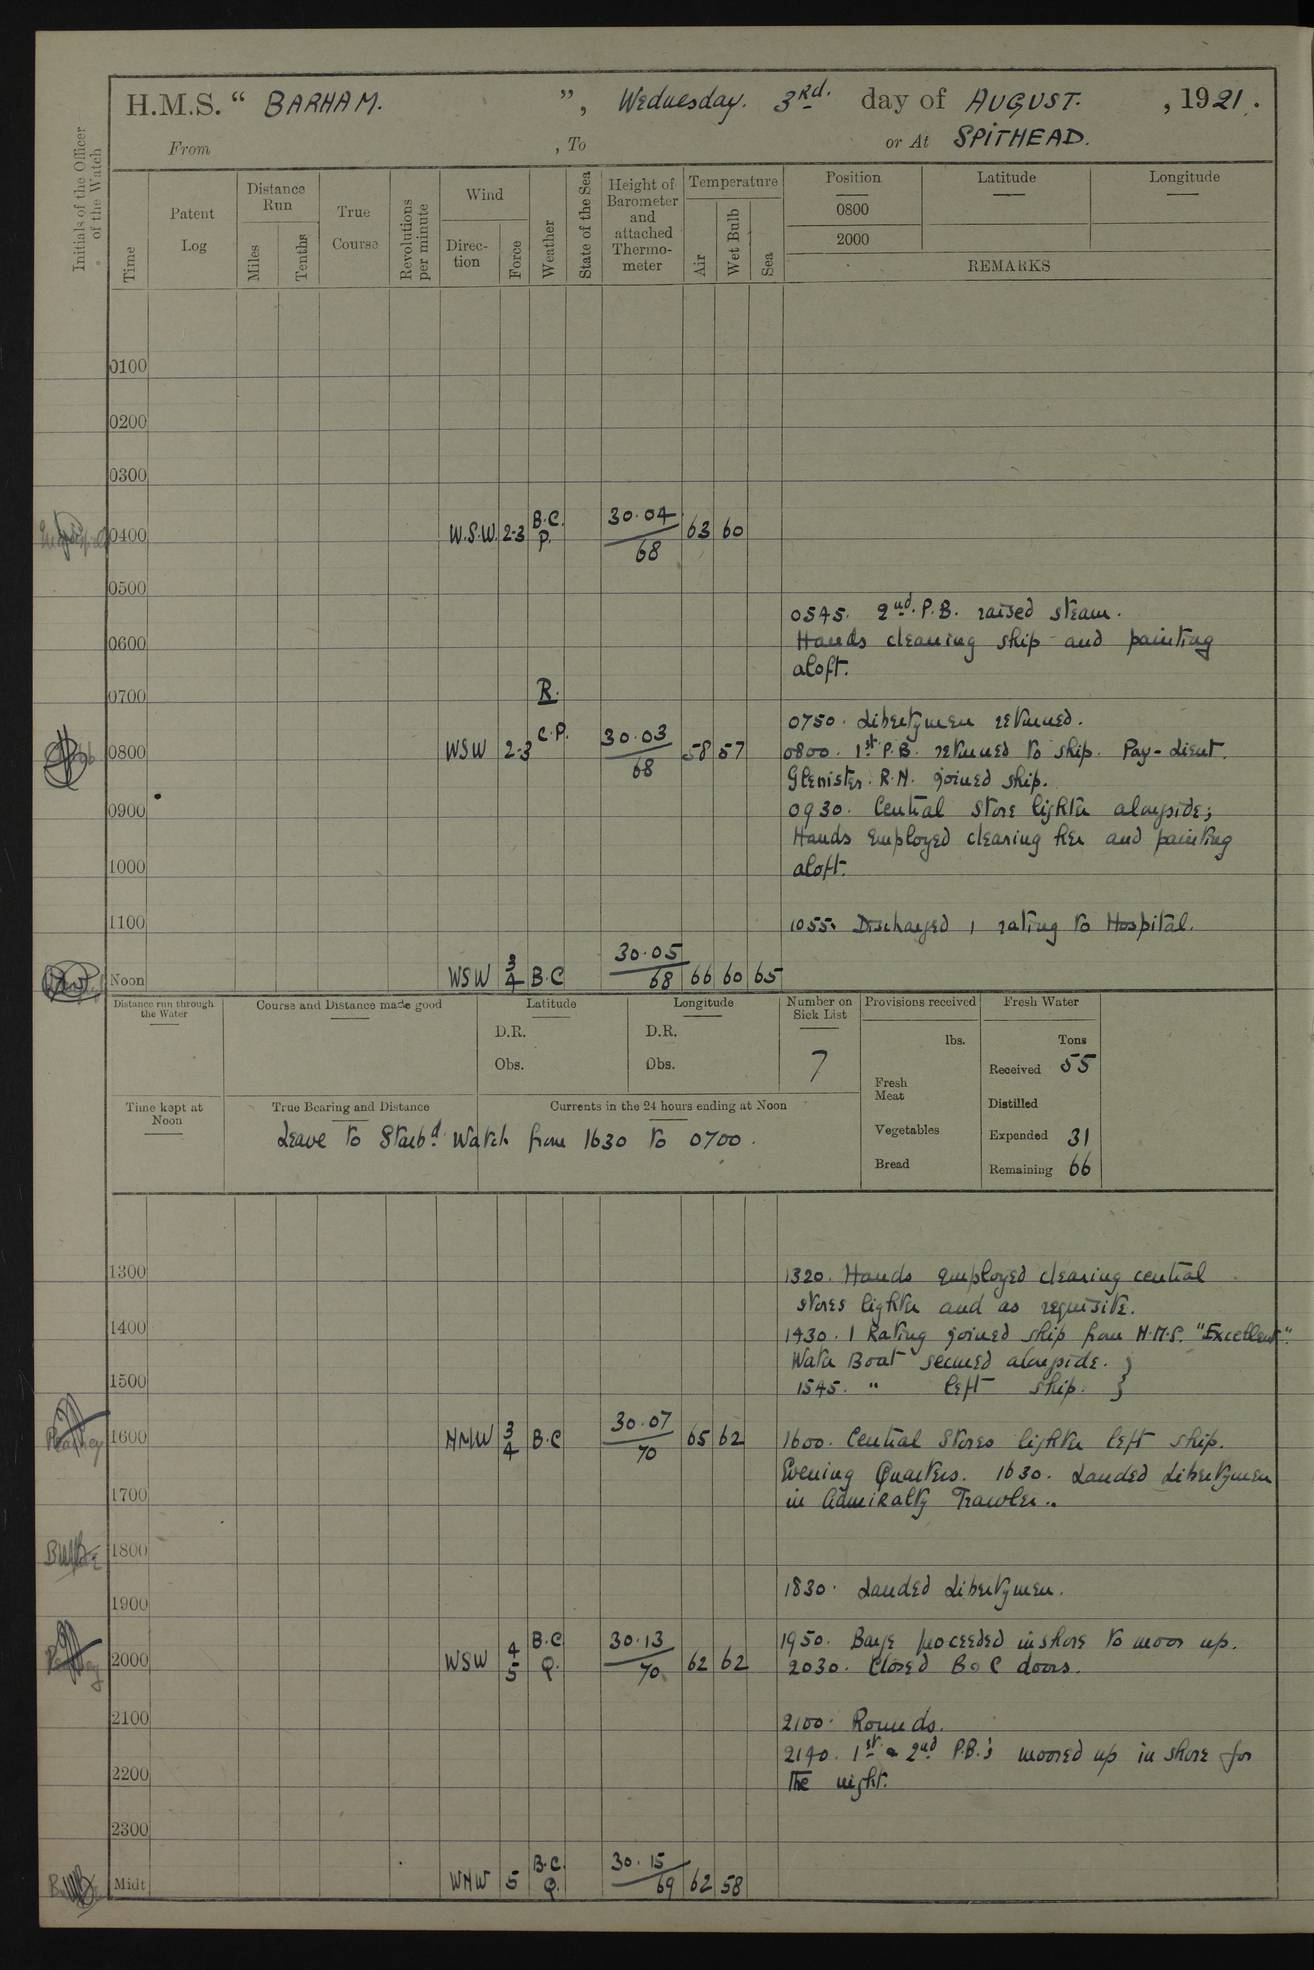 H.M.S. “ BARHAM. ”, Wednesday. 3rd. day of AUGUST. , 1921.
From , To or At SPITHEAD.
Initials of the Officer of the Watch
Time
Patent Log
Distance Run
Miles
Tenths
True Course
Revolutions per minute
Wind
Direc-tion
Force
Weather
State of the Sea
Height of Barometer and attached Thermo-meter
Temperature
Air
Wet Bulb
Sea
Position Latitude Longitude
0800
2000
REMARKS
0100
0200
0300
0400 W.S.W. 2-3 B.C. P. 30.04 68 63 60
0500
0545. 2nd. P.B. raised steam.
0600 Hands cleaning ship and painting
aloft.
0700 R.
0750. Libertymen returned.
0800 WSW 2-3 C.P. 30.03 68 58 57 0800. 1st P.B. returned to ship. Pay-Lieut.
Glenister. R.N. joined ship.
0900 0930. Central Store lighter alongside;
Hands employed clearing her and painting
1000 aloft.
1100 1055. Discharged 1 rating to Hospital.
Noon WSW 3/4 B.C 30.05 68 66 60 65
Distance run through the Water
Course and Distance made good
Latitude
D.R.
Obs.
Longitude
D.R.
Obs.
Number on Sick List
7
Provisions received
lbs.
Fresh Meat
Vegetables
Bread
Fresh Water
Tons
Received 55
Distilled
Expended 31
Remaining 66
Time kept at Noon
True Bearing and Distance
Currents in the 24 hours ending at Noon
Leave to Starbd. Watch from 1630 to 0700.
1300 1320. Hands employed clearing central
stores lighter and as requisite.
1400 1430. 1 Rating joined ship from H.M.S. "Excellent".
Water Boat secured alongside. }
1500 1545. " left ship. }
1600 NNW 3/4 B.C 30.07 70 65 62 1600. Central Stores lighter left ship.
Evening Quarters. 1630. Landed Libertymen
1700 in Admiralty Trawler..
1800
1830. Landed Libertymen.
1900
1950. Barge proceeded inshore to moor up.
2000 WSW 4/5 B.C Q. 30.13 70 62 62 2030. Closed B & C doors.
2100 2100. Rounds.
2140. 1st. & 2nd P.B.'s moored up in shore for
2200 the night.
2300
Midt WNW 5 B.C. Q. 30.15 69 62 58